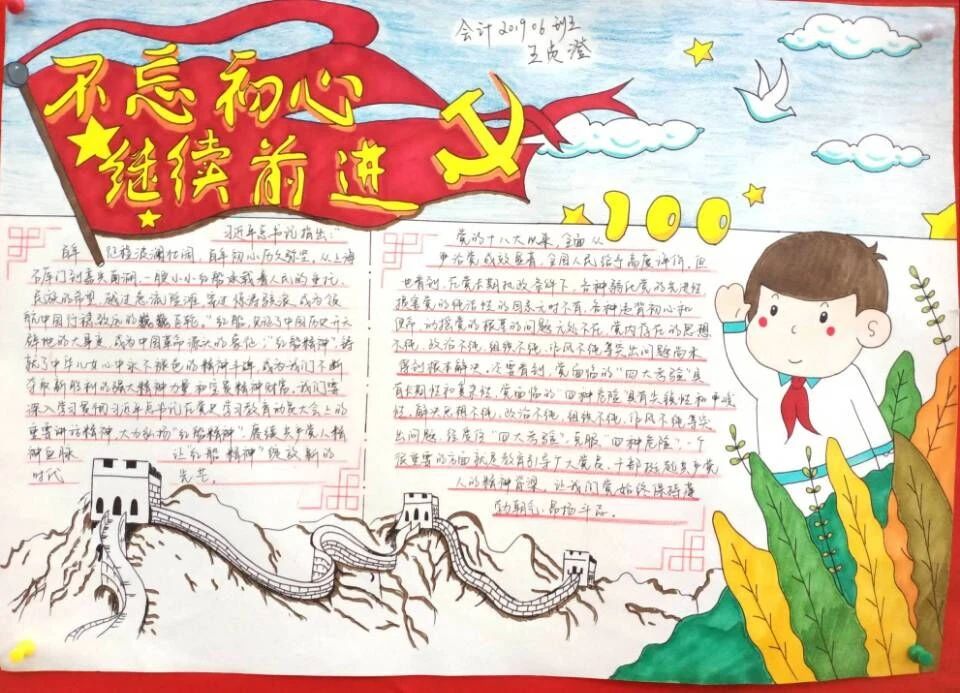 会计201906班
王虎澄
不忘初心
继续前进
100
习近平总书记指出:“
百年 征程波澜壮阔,百年初心历久弥坚,从上海
石库门到嘉兴南湖,一艘小小红船承载着人民的重托,
民族的希望,越过急流险滩,穿过惊涛骇浪,成为领
航中国行稳致远的巍巍巨轮。”红船,见证了中国历史开天
辟地的大事变,成为中国革命源头的象征;“红船精神”铸
就了中华儿女心中永不褪色的精神丰碑,成为我们不断
夺取新胜利的强大精神力量和宝贵精神财富。我们要
深入学习贯彻习近平总书记在党史学习教育动员大会上的
重要讲话精神,大力弘扬“红船精神”,赓续共产党人精
神血脉 让红船精神”绽放新的
时代 光芒。
党的十八大以来,全面从
严治党成效显著,全国人民给予高度评价,但
也看到,在党长期执政条件下,各种弱化党的先进性,
损害党的纯洁性的因素无时不有,各种违背初心和
使命,动摇党的根基的问题无处不在,党内存在的思想
不纯,政治不纯,组织不纯,作风不纯等突出问题尚未
得到根本解决。还要看到,党面临的“四大考验”具
有长期性和复杂性,党面临的“四种危险”具有尖锐性和严峻
性,解决思想不纯,政治不纯,组织不纯,作风不纯等突
出问题,经受住“四大考验”,克服“四种危险”,一个
很重要的方面就是教育引导广大党员、干部挺起共产党
人的精神脊梁,让我们党始终保持蓬
勃朝气、昂扬斗志。